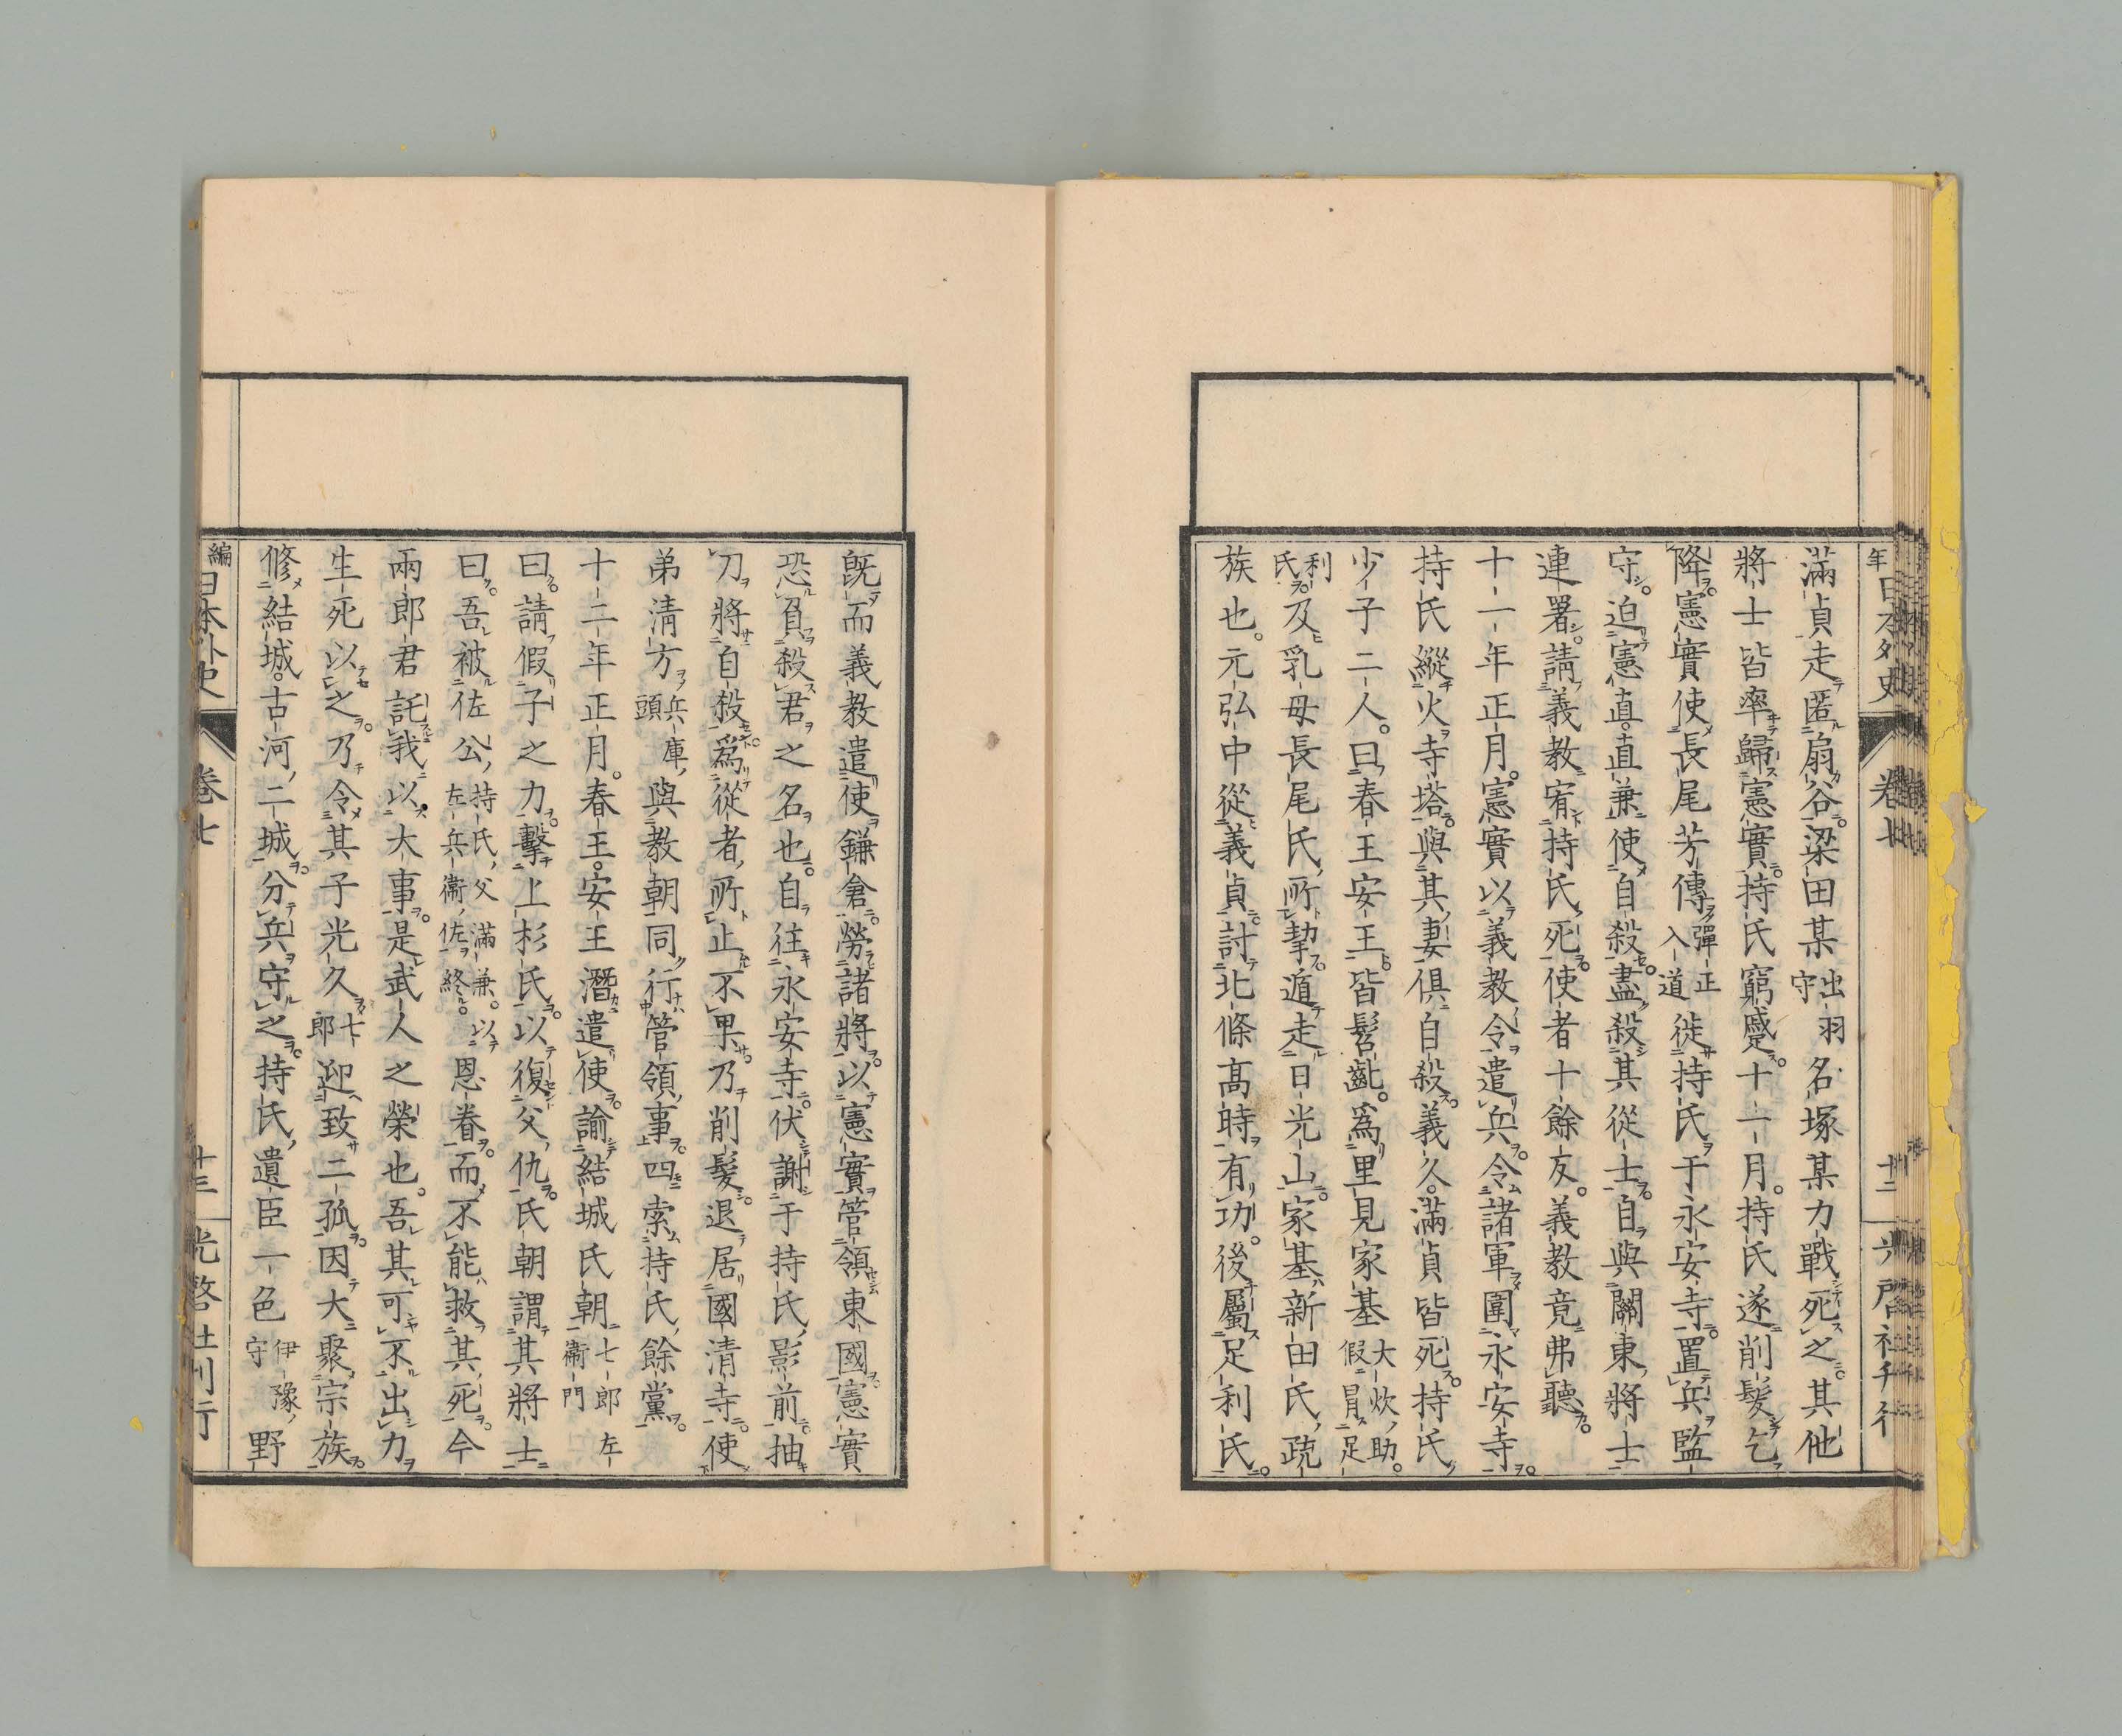 滿貞走匿扇谷。梁田某出羽守名塚某力戰死之。其他
將士皆率歸憲實。持氏窮蹙。十一月。持氏遂削髮乞
降。憲實使長尾芳傳彈正入道徙持氏于永安寺。置兵監
守。迫憲直。直兼使自殺。盡殺其從士。自與關東將士
連署。請義教宥持氏死。使者十餘反。義教竟弗聽。
十一年正月。憲實以義教令遣兵。令諸軍圍永安寺。
持氏縱火寺塔。與其妻俱自殺。義久。滿貞皆死。持氏
少子二人。曰春王安王。皆髫齔。爲里見家基大炊助。假冒足
利氏。及乳母長尾氏所挈遁走日光山。家基新田氏疏
族也。元弘中從義貞討北條高時有功。後屬足利氏。
年日本外史 卷七 十二
既而義教遣使鎌倉。勞諸將。以憲實管領東國。憲實
恐負殺君之名也。自往永安寺。伏謝于持氏影前。抽
刀將自殺。爲從者所止不果。乃削髮。退居國清寺。使
弟清方兵庫頭與教朝同行管領事。四索持氏餘黨。
十二年正月。春王。安王潛遣使諭結城氏朝七郎左衞門
曰。請假子之力。擊上杉氏。以復父仇。氏朝謂其將士
曰。吾被佐公持氏父滿兼。以左兵衞佐終。恩眷。而不能救其死。今
兩郎君託我以大事。是武人之榮也。吾其可不出力
生死以之。乃令其子光久七郎迎致二孤。因大聚宗族。
修結城。古河二城。分兵守之。持氏遺臣一色伊豫守野
編日本外史 卷七 十三 光啓社刊行